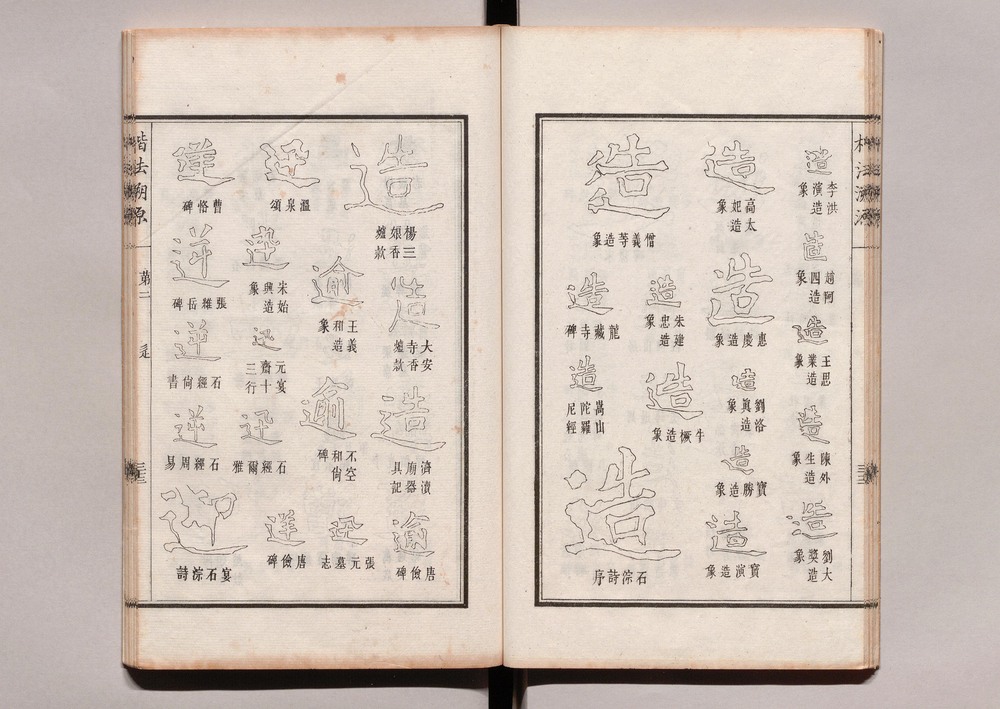 造
李洪演造象
造
趙阿四造象
造
王思業造象
造
陳外生造象
造
劉大奬造象
造
高太妃造象
造
惠慶造象
造
劉洛真造象
造
寶勝造象
造
寶演造象
造
僧義等造象
造
朱建忠造象
造
龍藏寺碑
造
牛橛造象
造
嵩山陀羅尼經
造
石淙詩序
造
楊三娘香爐款
造
大安寺香爐款
造
濟瀆廟器具記
逾
唐儉碑
逾
王義和造象
逾
不空和尚碑
迅
溫泉頌
迅
宋始興造象
迅
元宴齋三十行
迅
石經爾雅
迅
張元墓志
逆
唐儉碑
逆
曹恪碑
逆
張雄岳碑
逆
石經尚書
逆
石經周易
宴石淙詩
楷法溯源
第二
辵